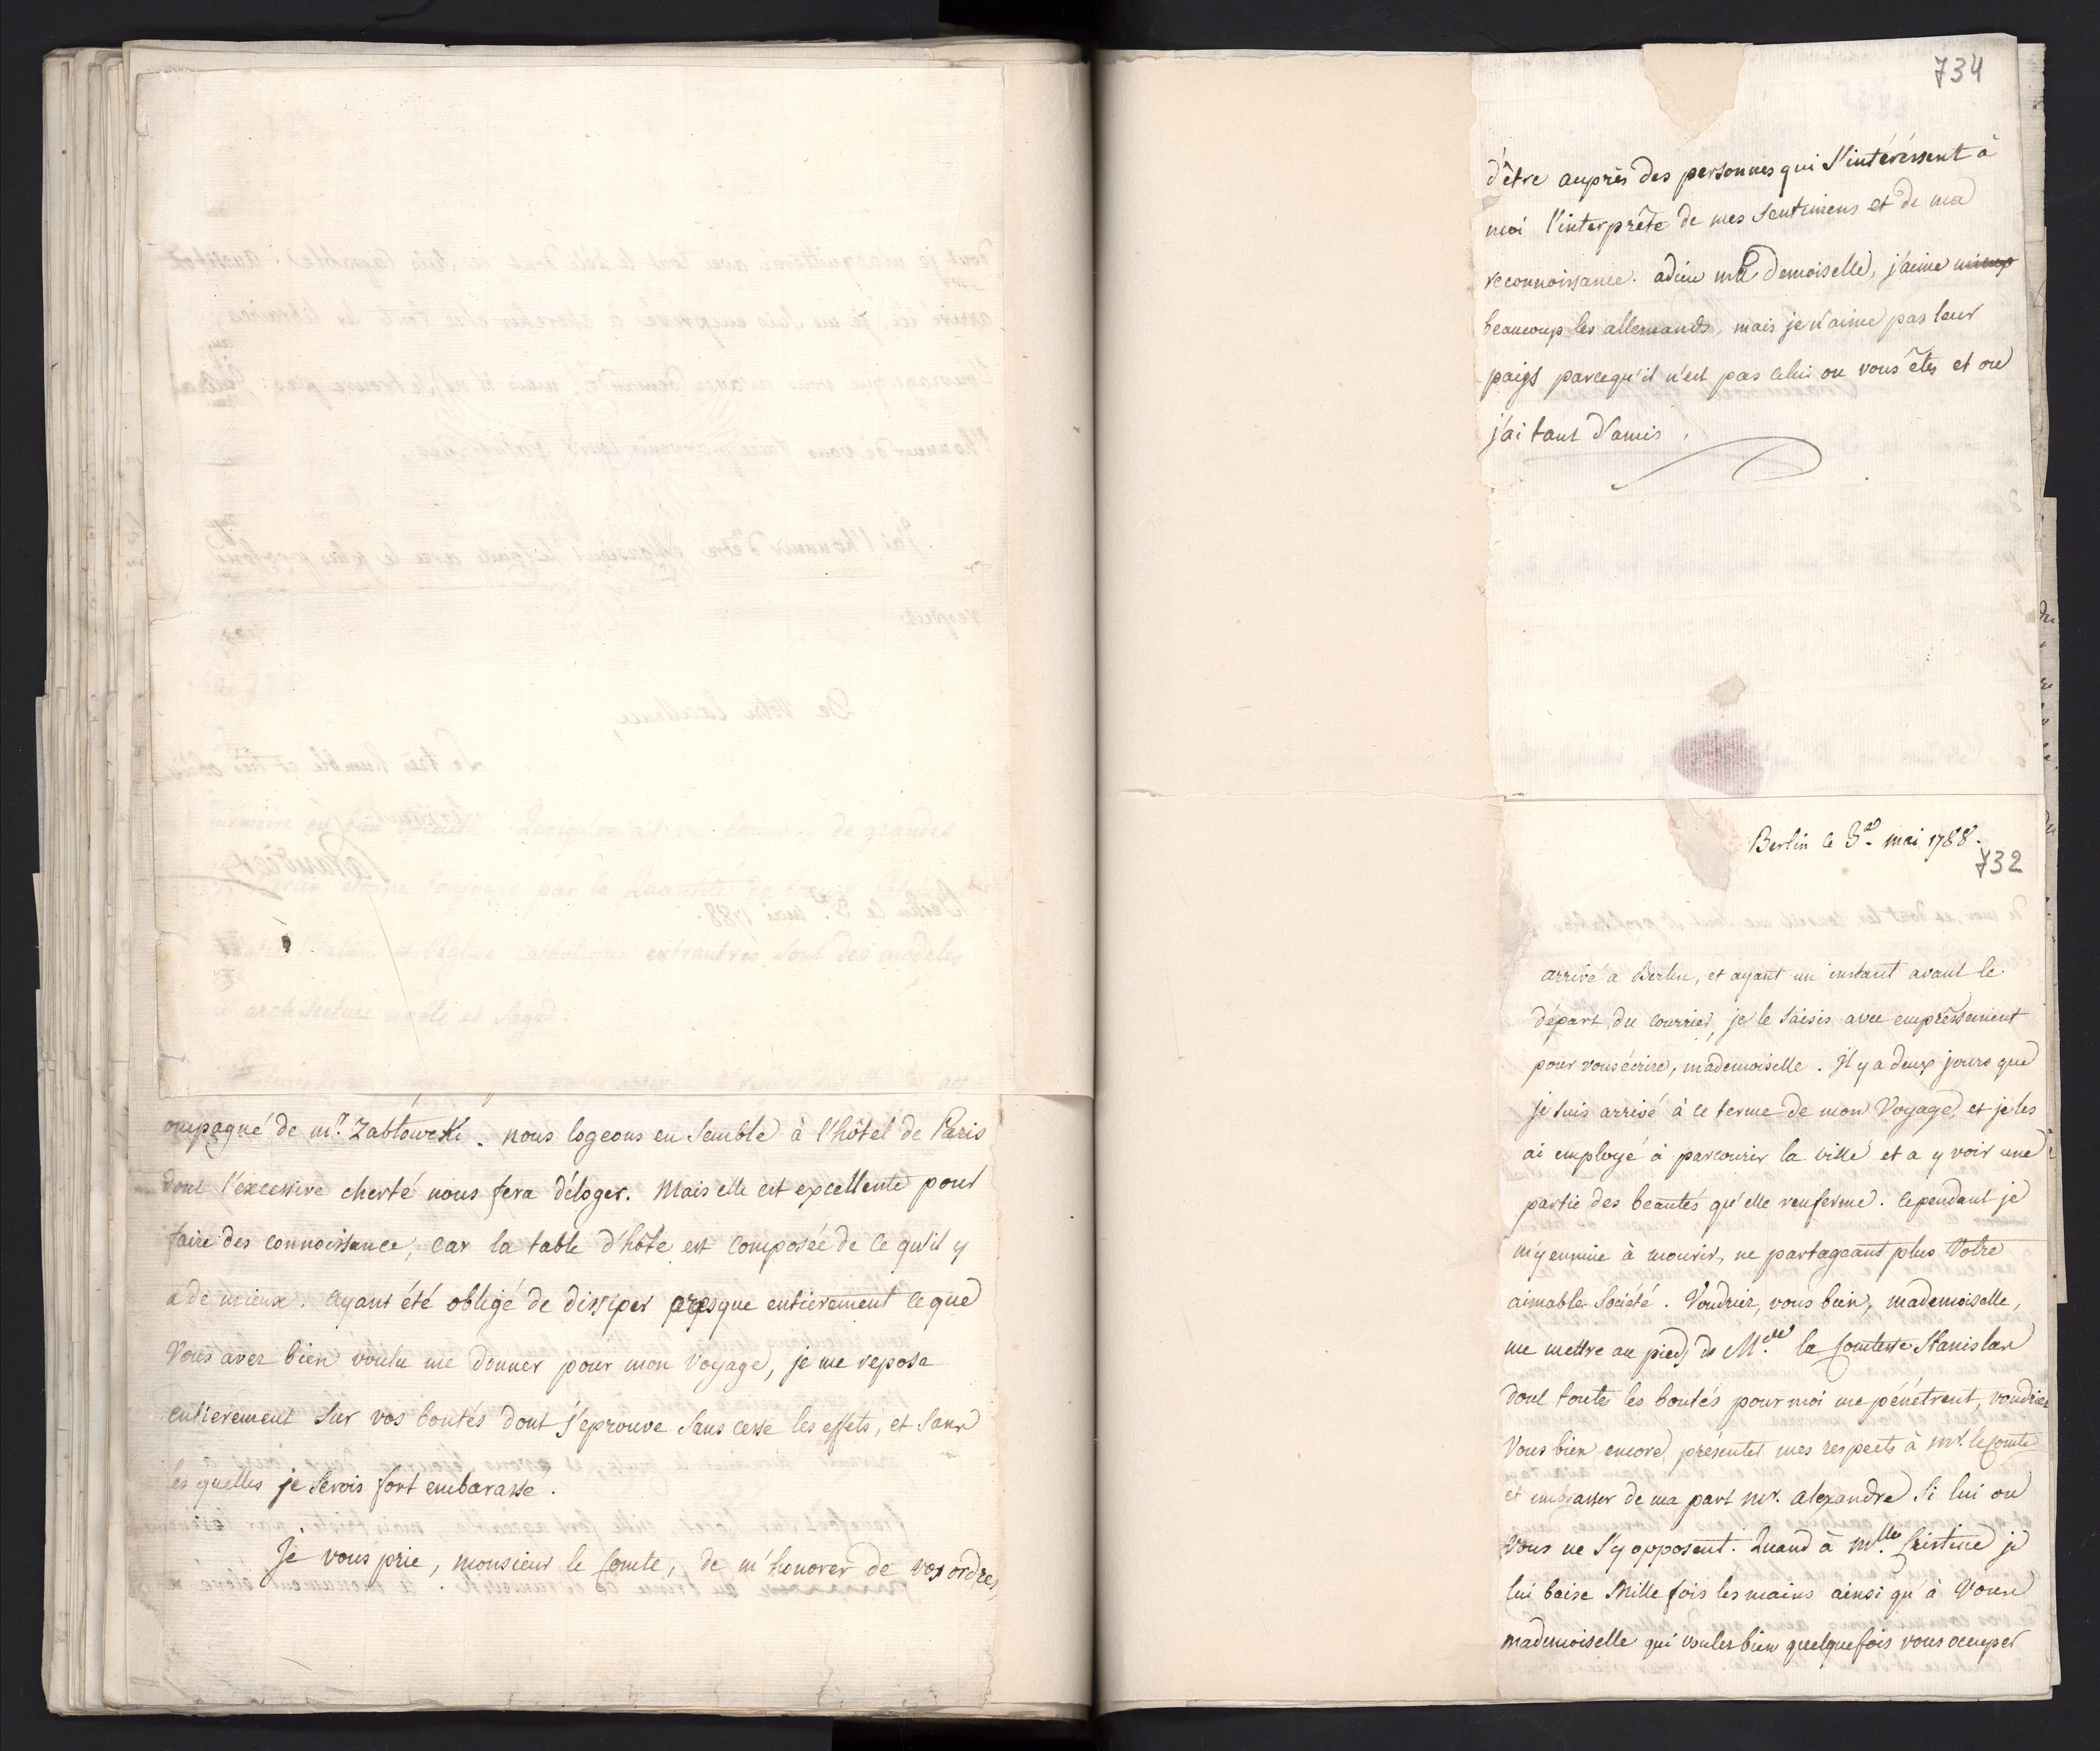 ompagné de mr. Zabtowcki. nous logeons en semble à l'hôtel de Paris
dont l'excessive cherté nous fera déloger. Mais elle est excellente pour
faire des connoissance, car la table d'hôte est composée de ce qu'il y
a de mieux. ayant été obligé de dissiper presque entierement ce que
Vous avez bien voulu me donner pour mon voyage, je me repose
entierement sur vos bontés dont j'eprouve sans cesse les effets, et sans
les quelles je serois fort embarassé.
Je vous prie, monsieur le Comte, de m'honorer de vos ordres,
734
d'être auprès des personnes qui s'intéréssent à
moi l'interprête de mes sentimens et de ma
reconnoissance. adieu ma demoiselle, j'aime mieux
beaucoup les allemands, mais je n'aime pas leur
païs parcequ'il n'est pas celui ou vous êtes et ou
j'ai tant d'amis.
Berlin le 3e. mai 1788.
732
arrivé a Berlin, et ayant un instant avant le
départ du courrier, je le saisis avec empressement
pour vous écrire, mademoiselle. Il y a deux jours que
je suis arrivé à ce terme de mon Voyage, et je les
ai employé à parcourir la ville et a y voir une
partie des beautés qu'elle renferme. Cependant je
m'y ennuie à mourir, ne partageant plus Votre
aimable société. Voudriez, vous bien, mademoiselle,
me mettre au pieds de Mde. la Comtesse Stanislas
dont toutes les bontés pour moi me pénétrent, voudriez
Vous bien encore, présenter mes respects à mr. le Comte
et embrasser de ma part mr. alexandre si lui ou
Vous ne s'y opposent. Quand à Mlle. Cristine je
lui baise Mille fois les mains ainsi qu'à Vous
mademoiselle qui voulez bien quelquefois vous occuper